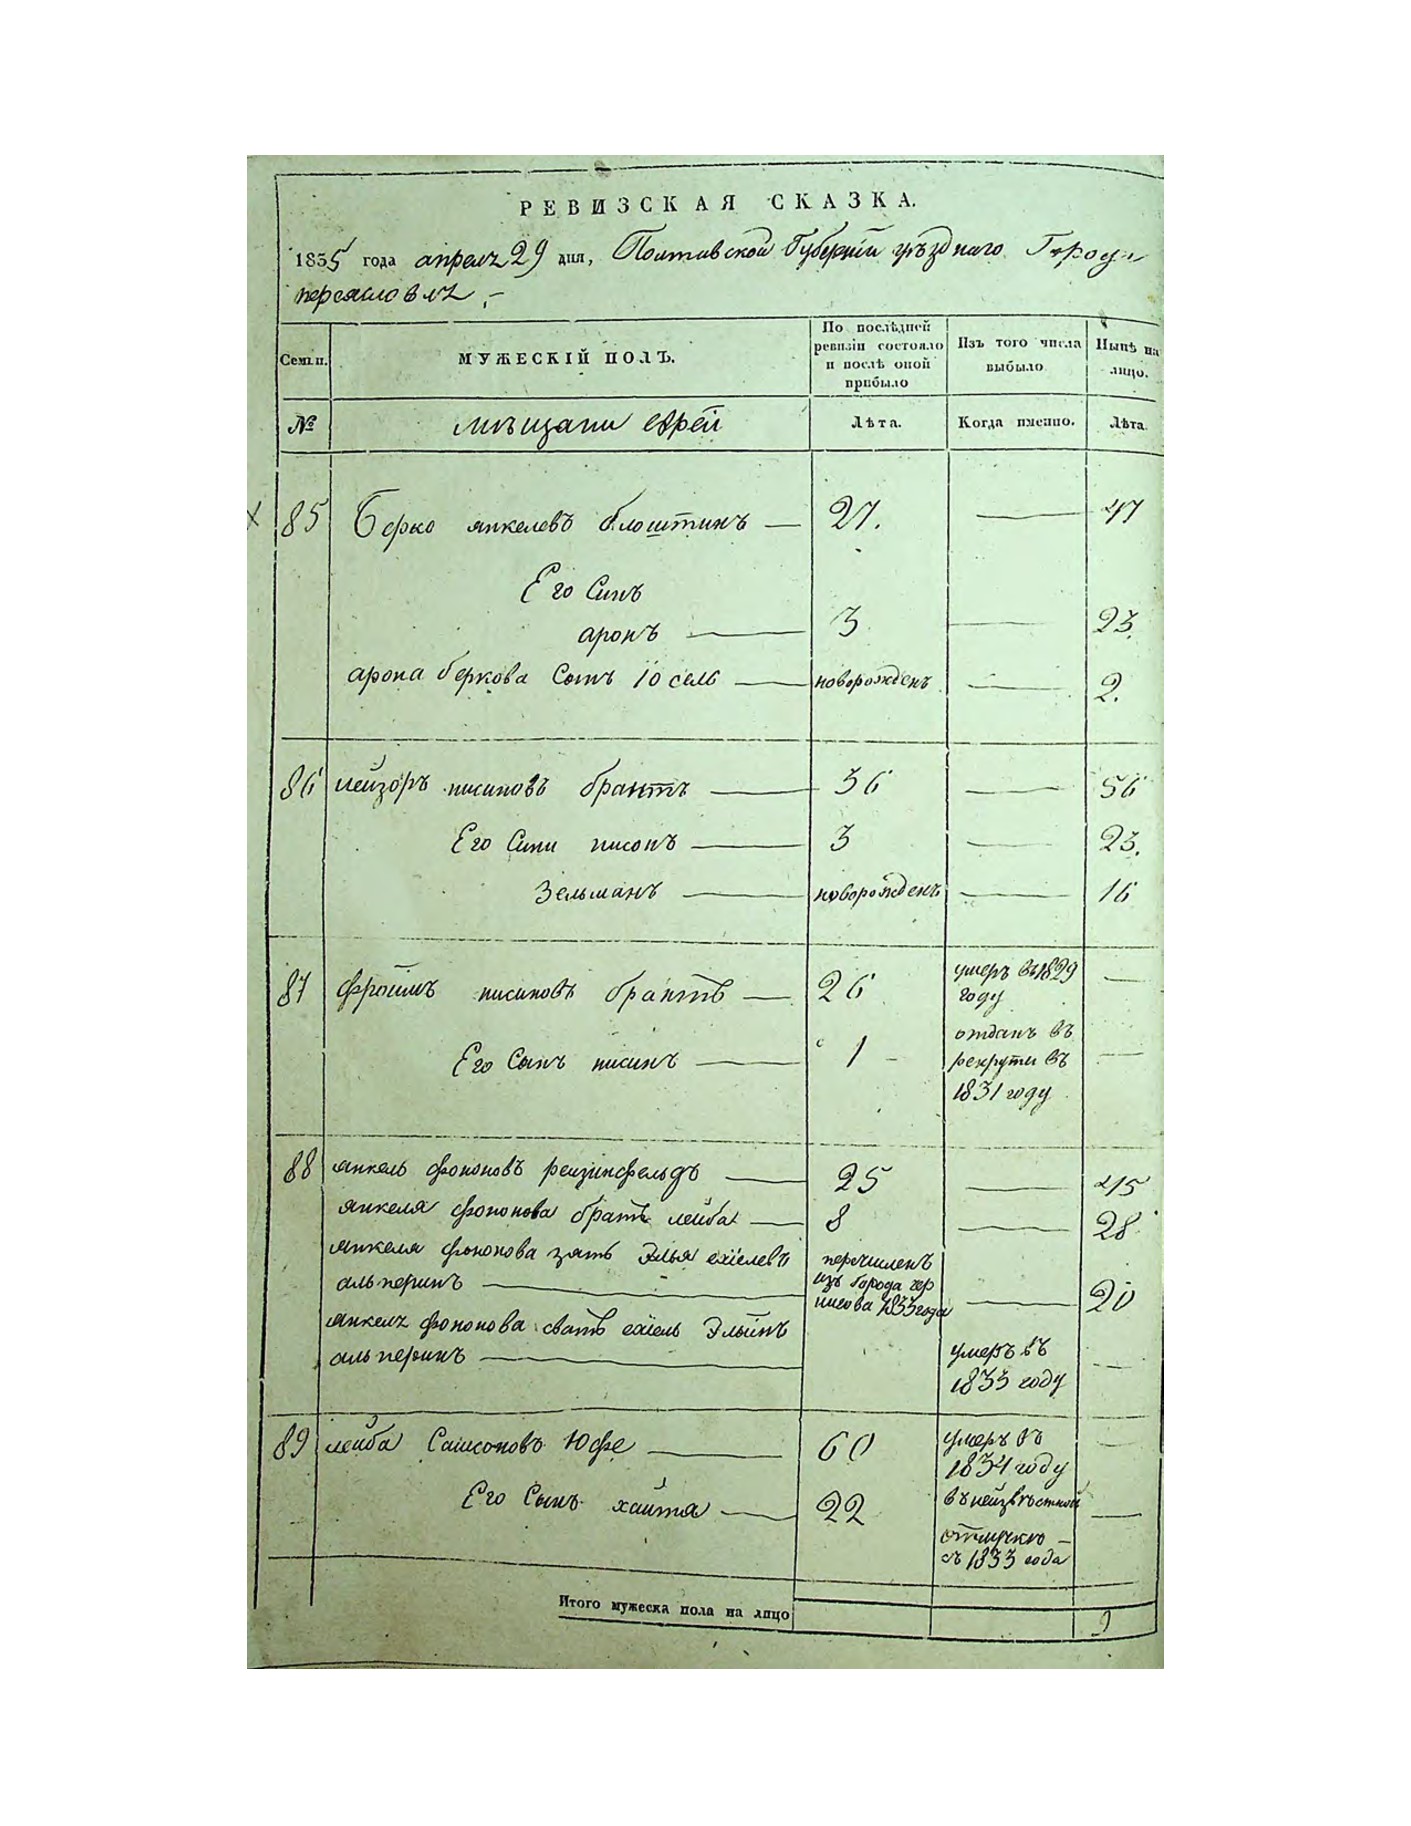 РЕВИЗСКАЯ СКАЗКА.
1835 года апреля 29 дня, Полтавской Губернии уѣзднаго Города
переяславля
Семьи. МУЖЕСКІЙ ПОЛЪ. По послѣдней ревизіи состояло и послѣ оной прибыло Изъ того числа выбыло Нынѣ на лицо.
№ мѣщани евреи Лѣта. Когда именно. Лѣта.
85 Берко янкелевъ блоштинъ 27. 47
Его Синъ
аронъ 3 23.
арона беркова Сынъ Іосель новорожденъ 2.
86 лейзоръ нисиновъ брантъ 36 56
Его Сини нисонъ 3 23.
Зельманъ новорожденъ 16
87 фроимъ нисиновъ брантъ 26 умеръ въ 1829
году
Его Сынъ нисинъ 1 отданъ въ
рекрути въ
1831 году
88 янкель фононовъ рейзинфельдъ 25 45
янкеля фононова братъ лейба 8 28
янкеля фононова зять Элья ехіелевъ перечисленъ
альперинъ изъ города чер
нигова 1833 года 20
янкеля фононова сватъ ехіель Эльинъ
альперинъ умеръ въ
1833 году
89 лейба Самсоновъ Юфе 60 умеръ въ
1834 году
Его Сынъ хаимя 22 въ неизвѣстной
отлучкѣ
съ 1833 года
Итого мужеска пола на лицо 9